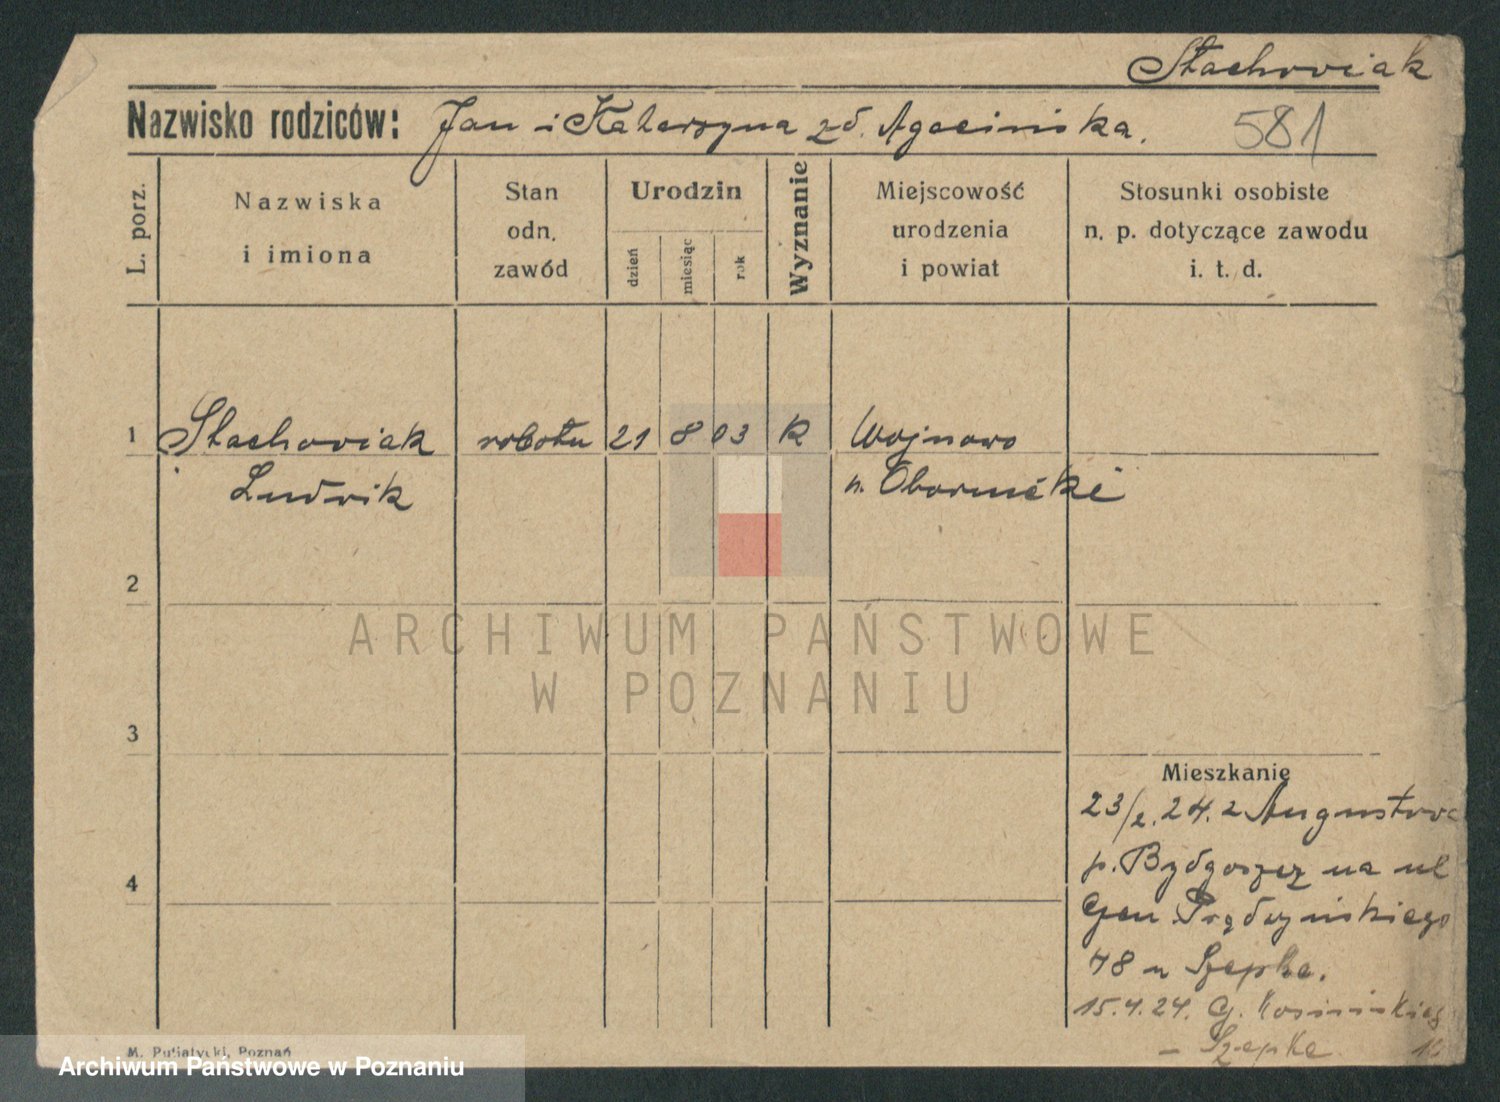 Stachowiak
Nazwisko rodziców: Jan i Katarzyna zd. Agacińska.
581
L. porz.
Nazwiska
i imiona
Stan
odn.
zawód
Urodzin
dzień
miesiąc
rok
Wyznanie
Miejscowość
urodzenia
i powiat
Stosunki osobiste
n. p. dotyczące zawodu
i. t. d.
1 Stachowiak robotn 21 8 03 K Wojnowo
Ludwik
p. Obornicki
2
3
4
Mieszkanie
23/2.24. z Augustowo
p. Bydgoszcz na ul
Gen Prądzyńskiego
48 u Szepke.
15.4.24. G. Kosińskieg
– Szepke. 10
ARCHIWUM PAŃSTWOWE
W POZNANIU
M. Putiatycki, Poznań
Archiwum Państwowe w Poznaniu